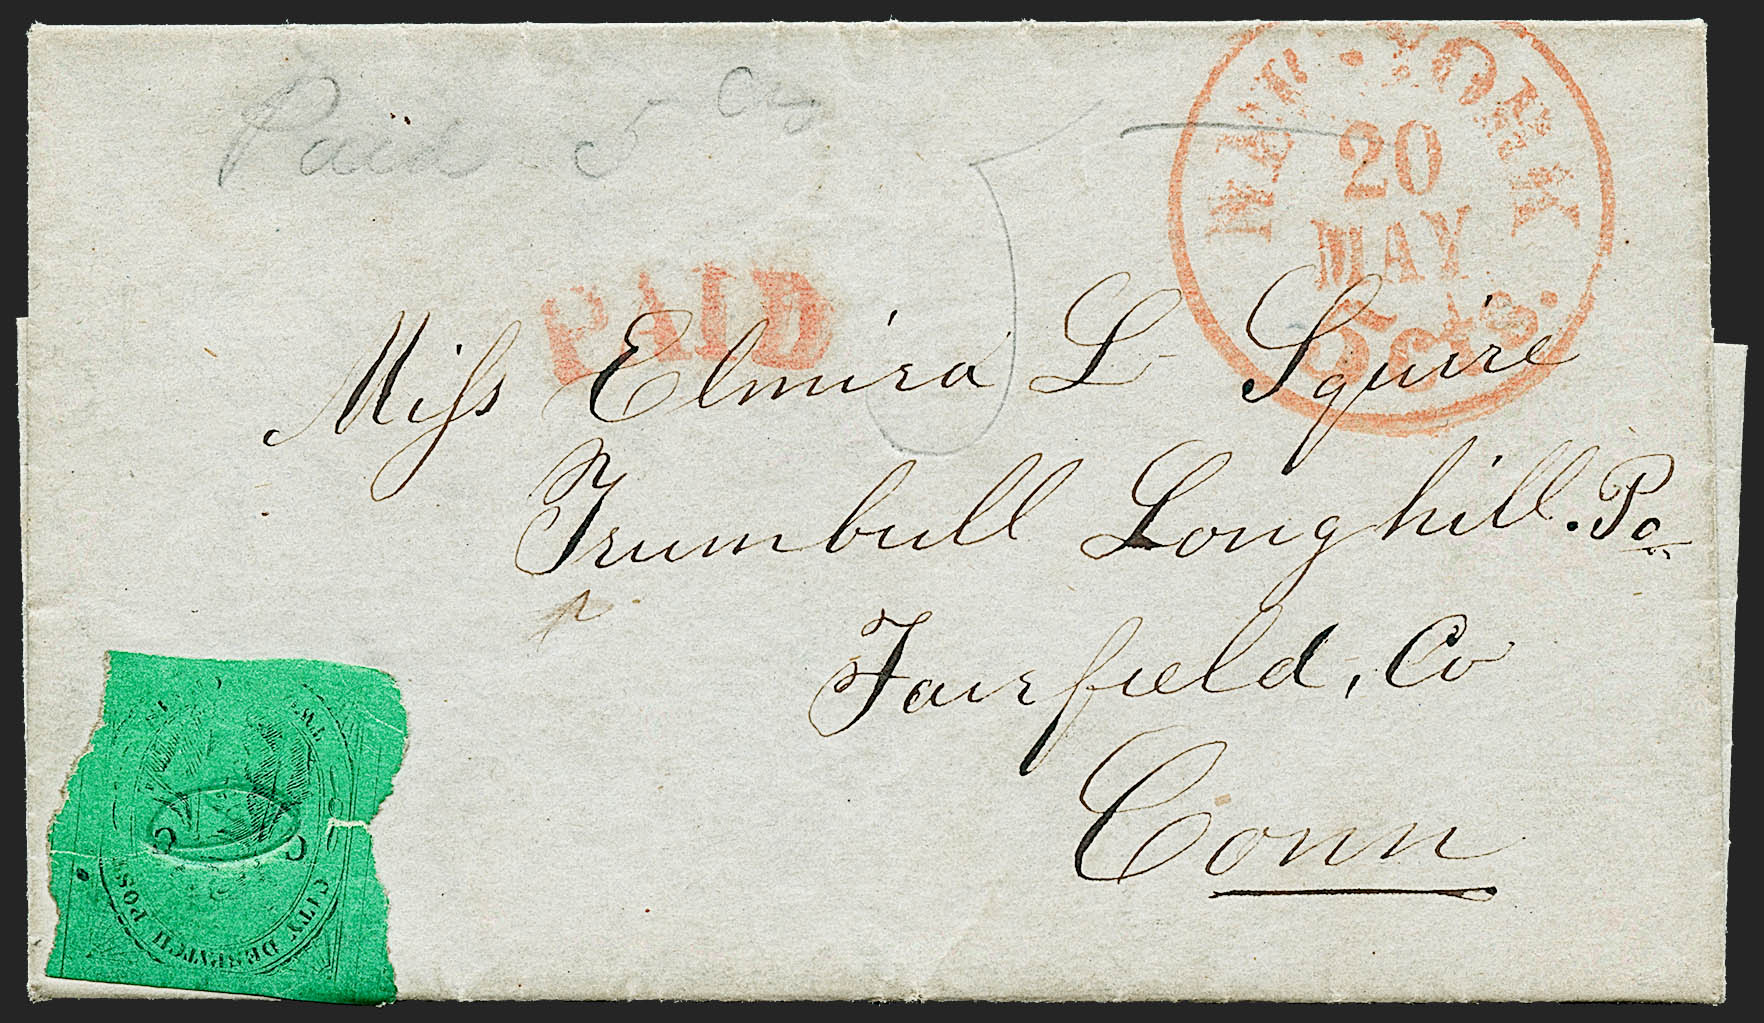 Paid 5 Cts
NEW-YORK
20
MAY
5cts.
PAID
5
Miss Elmira L Squire
Trumbull Longhill. Po
Fairfield, Co
Conn
CITY DESPATCH POS
C C